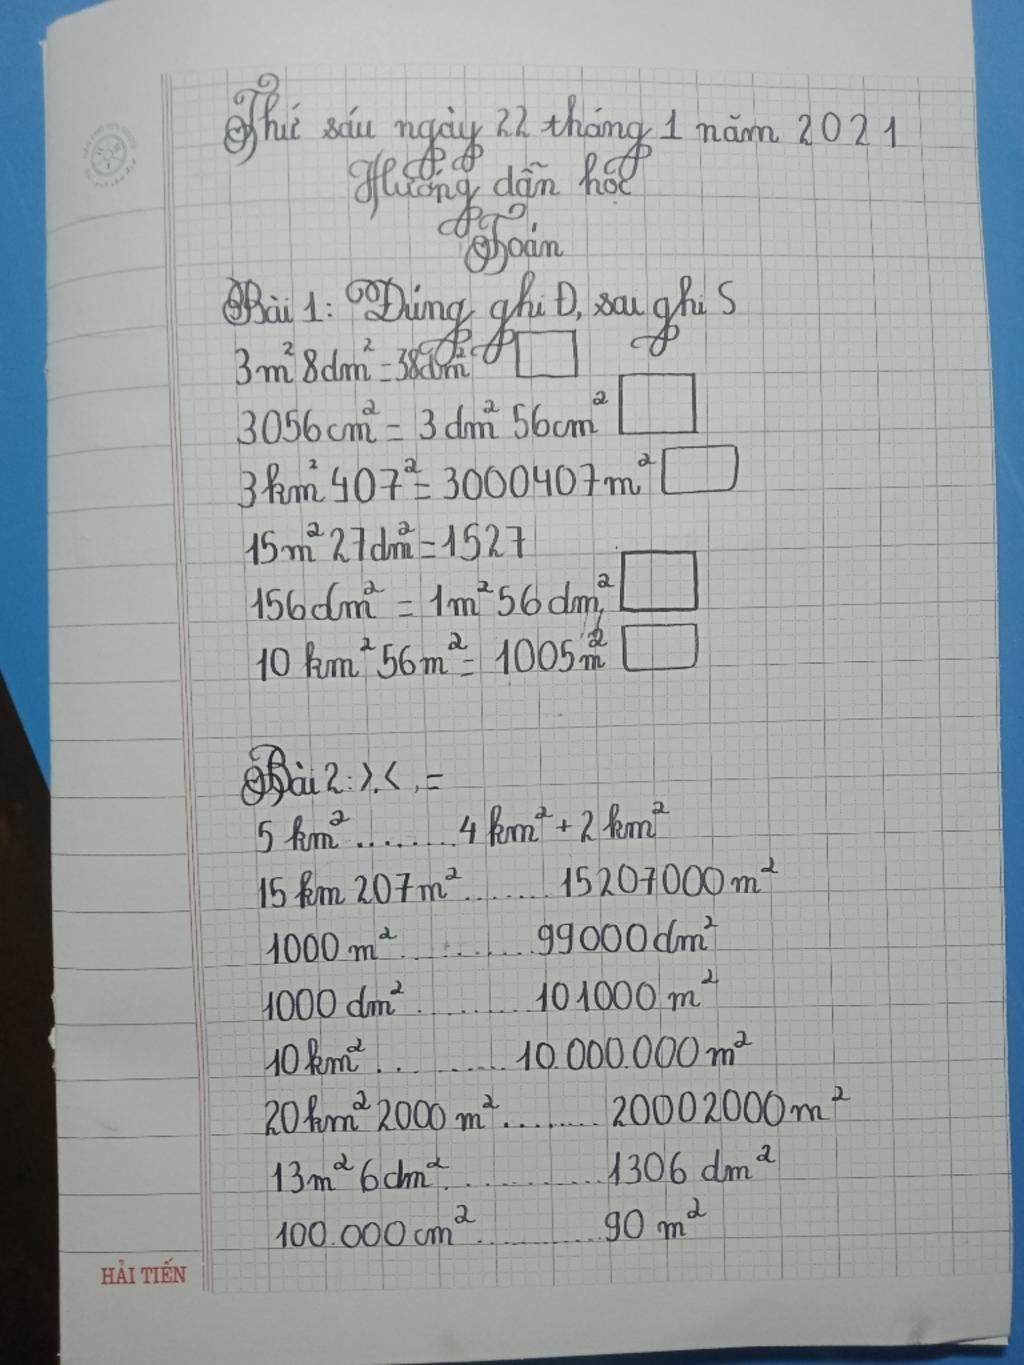 Thứ sáu ngày 22 tháng 1 năm 2021
Hướng dẫn học
Toán
Bài 1: Đúng ghi Đ, sai ghi S
3m² 8dm² = 38dm²
3056cm² = 3dm² 56cm²
3km² 407² = 3000407m²
15m² 27dm² = 1527
156dm² = 1m² 56dm²
10 km² 56m² = 1005m²
Bài 2: >, <, =
5 km² ........ 4 km² + 2 km²
15 km 207m² ....... 15207000m²
1000 m² ........ 99000dm²
1000 dm² ........ 101000 m²
10 km² ........ 10.000.000 m²
20km² 2000 m² ........ 20002000m²
13m² 6dm² ........ 1306 dm²
100.000 cm² ........ 90 m²
HẢI TIẾN